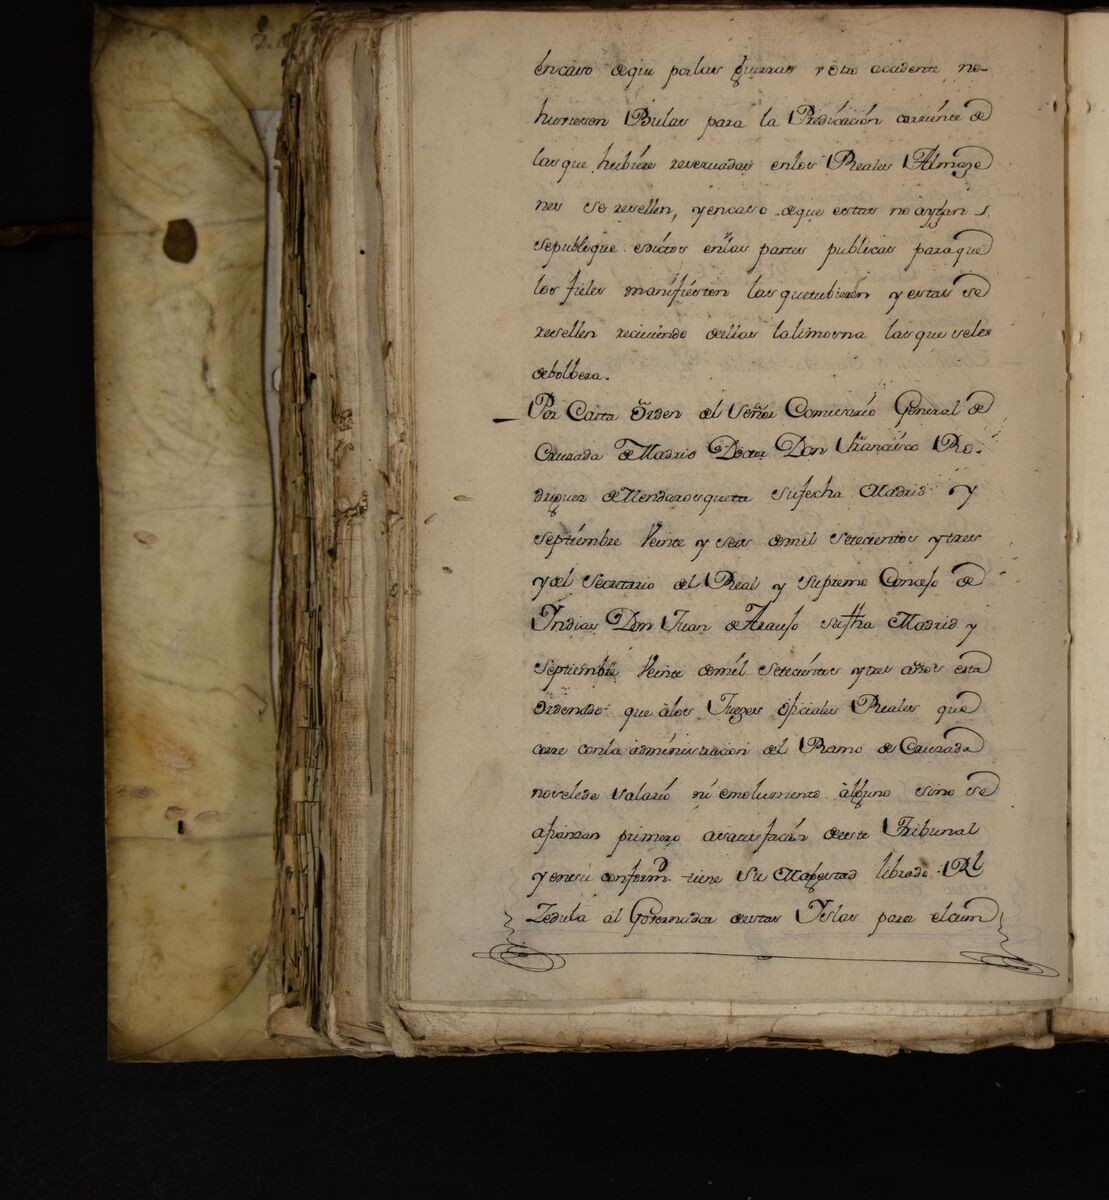 en caso de que por las guerras y otro acadente no-
huviesen Bulas para la Predicación corriente de
las que hubiere reservadas en los Reales Almaze
nes se resellen, y en caso de que estas no aygan
se publique edictos en las partes publicas para que
los fieles manifiesten las que tubieren y estas se
resellen reciviendo de ellas la limosna las que seles
debolbera.
Por Carta Orden del Señor Comisario General de
Cruzada de Madrid Doctor Don Francisco Ro-
driguez de Mendarosqueta su fecha Madrid y
Septiembre Veinte y seis de mil setecientos y tres
y del Secretario del Real y Supremo Consejo de
Yndias Don Juan de Araujo su fha Madrid y
Septiembre Veinte de mil setecientos y tres años esta
ordenado que a los Juezes oficiales Reales que
corre con la administracion del Ramo de Cruzada
no se le de salario ni emolumento alguno sino se
afianzan primero a satisfacin de este Tribunal
y en su conformd. tiene Su Magestad librado Rl
Zedula al Governador de estas Yslas para el cum